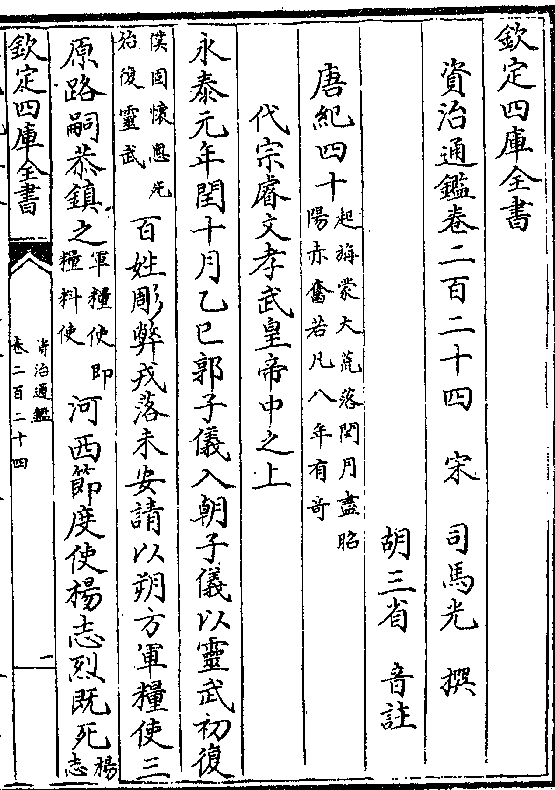 欽定四庫全書
資治通鑑卷二百二十四 宋 司馬光 撰
胡三省 音註
唐紀四十
起旃蒙大荒落閏月盡昭
陽赤奮若凡八年有奇
代宗睿文孝武皇帝中之上
永泰元年閏十月乙巳郭子儀入朝子儀以靈武初復
僕固懷恩死
始復靈武
百姓彫弊戎落未安請以朔方軍糧使三
原路嗣恭鎮之
軍糧使即
糧料使
河西節度使楊志烈既死
楊
志
欽定四庫全書
資治通鑑
卷二百二十四
一